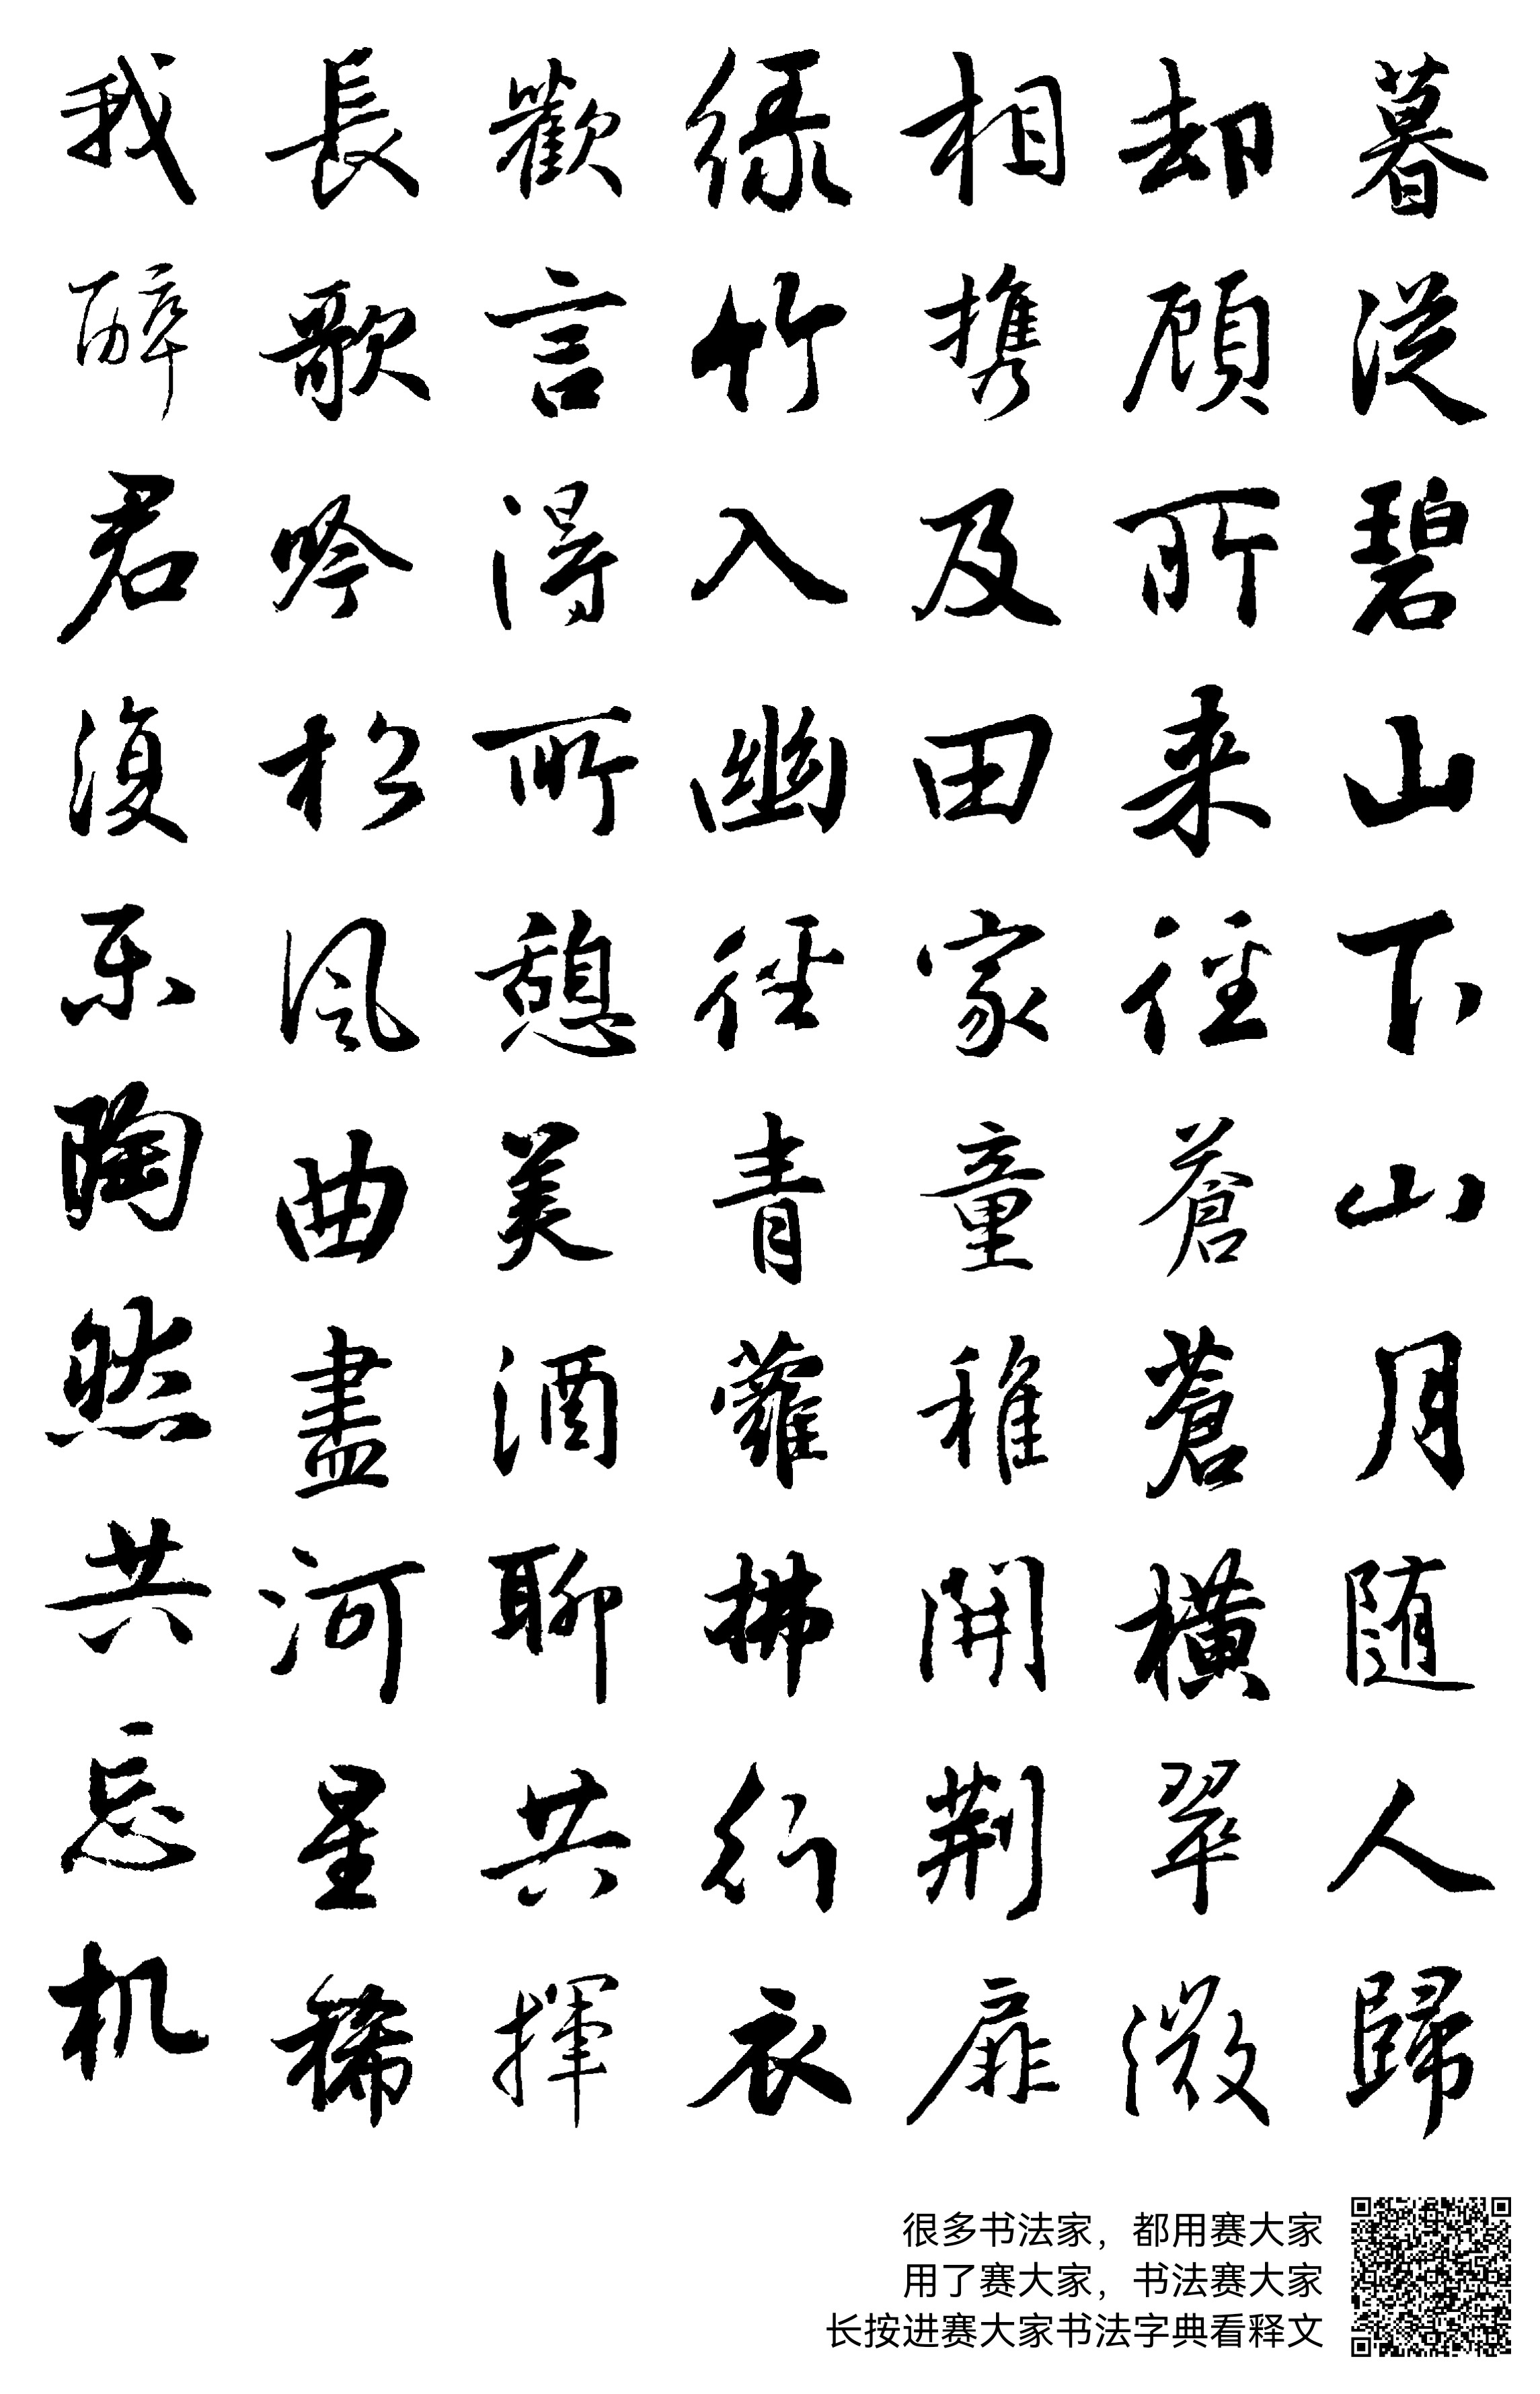 暮從碧山下山月随人歸
却顧所来徑蒼蒼橫翠微
相携及田家童稚開荆扉
緑竹入幽徑青蘿拂行衣
歡言得所憩美酒聊共揮
長歌吟松風曲盡河星稀
我醉君復乐陶然共忘机
很多书法家，都用赛大家
用了赛大家，书法赛大家
长按进赛大家书法字典看释文